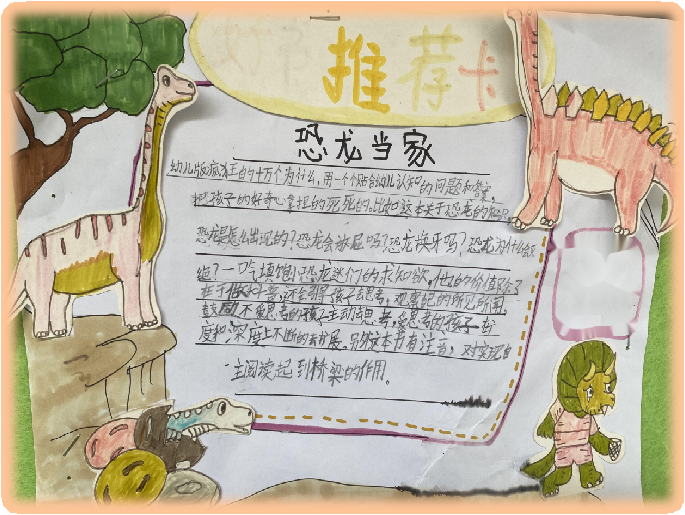 好书
推荐卡
恐龙当家
幼儿版疯狂的十万个为什么,用一个个贴合幼儿认知的问题和答案,
把孩子的好奇心拿捏的死死的,比如这本关于恐龙的
恐龙是怎么出现的?恐龙会放屁吗?恐龙换牙吗?恐龙为什么会灭
绝?一口气填饱小恐龙迷们的求知欲。他的价值除了
在于做科普,还会引导孩子去思考,观察自己的所见所闻。
鼓励不爱思考的孩子主动思考,爱思考的孩子 广
度和深度上不断的去扩展。另外这本书有注音,对实现自
主阅读起到桥梁的作用。